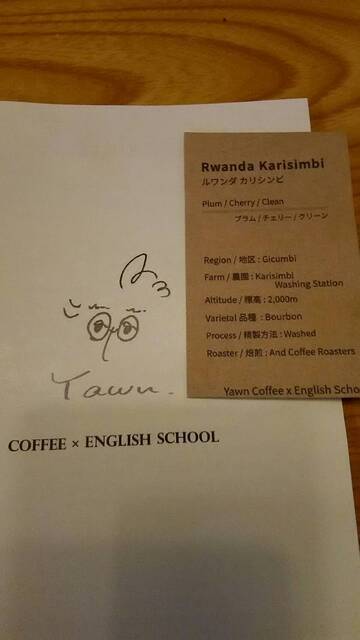 Rwanda Karisimbi
ルワンダ カリシンビ
Plum / Cherry / Clean
プラム / チェリー / クリーン
Region / 地区 : Gicumbi
Farm / 農園 : Karisimbi
Washing Station
Altitude / 標高 : 2,000m
Varietal 品種 : Bourbon
Process / 精製方法 : Washed
Roaster / 焙煎 : And Coffee Roasters
Yawn Coffee x English Scho
Yawn.
COFFEE × ENGLISH SCHOOL